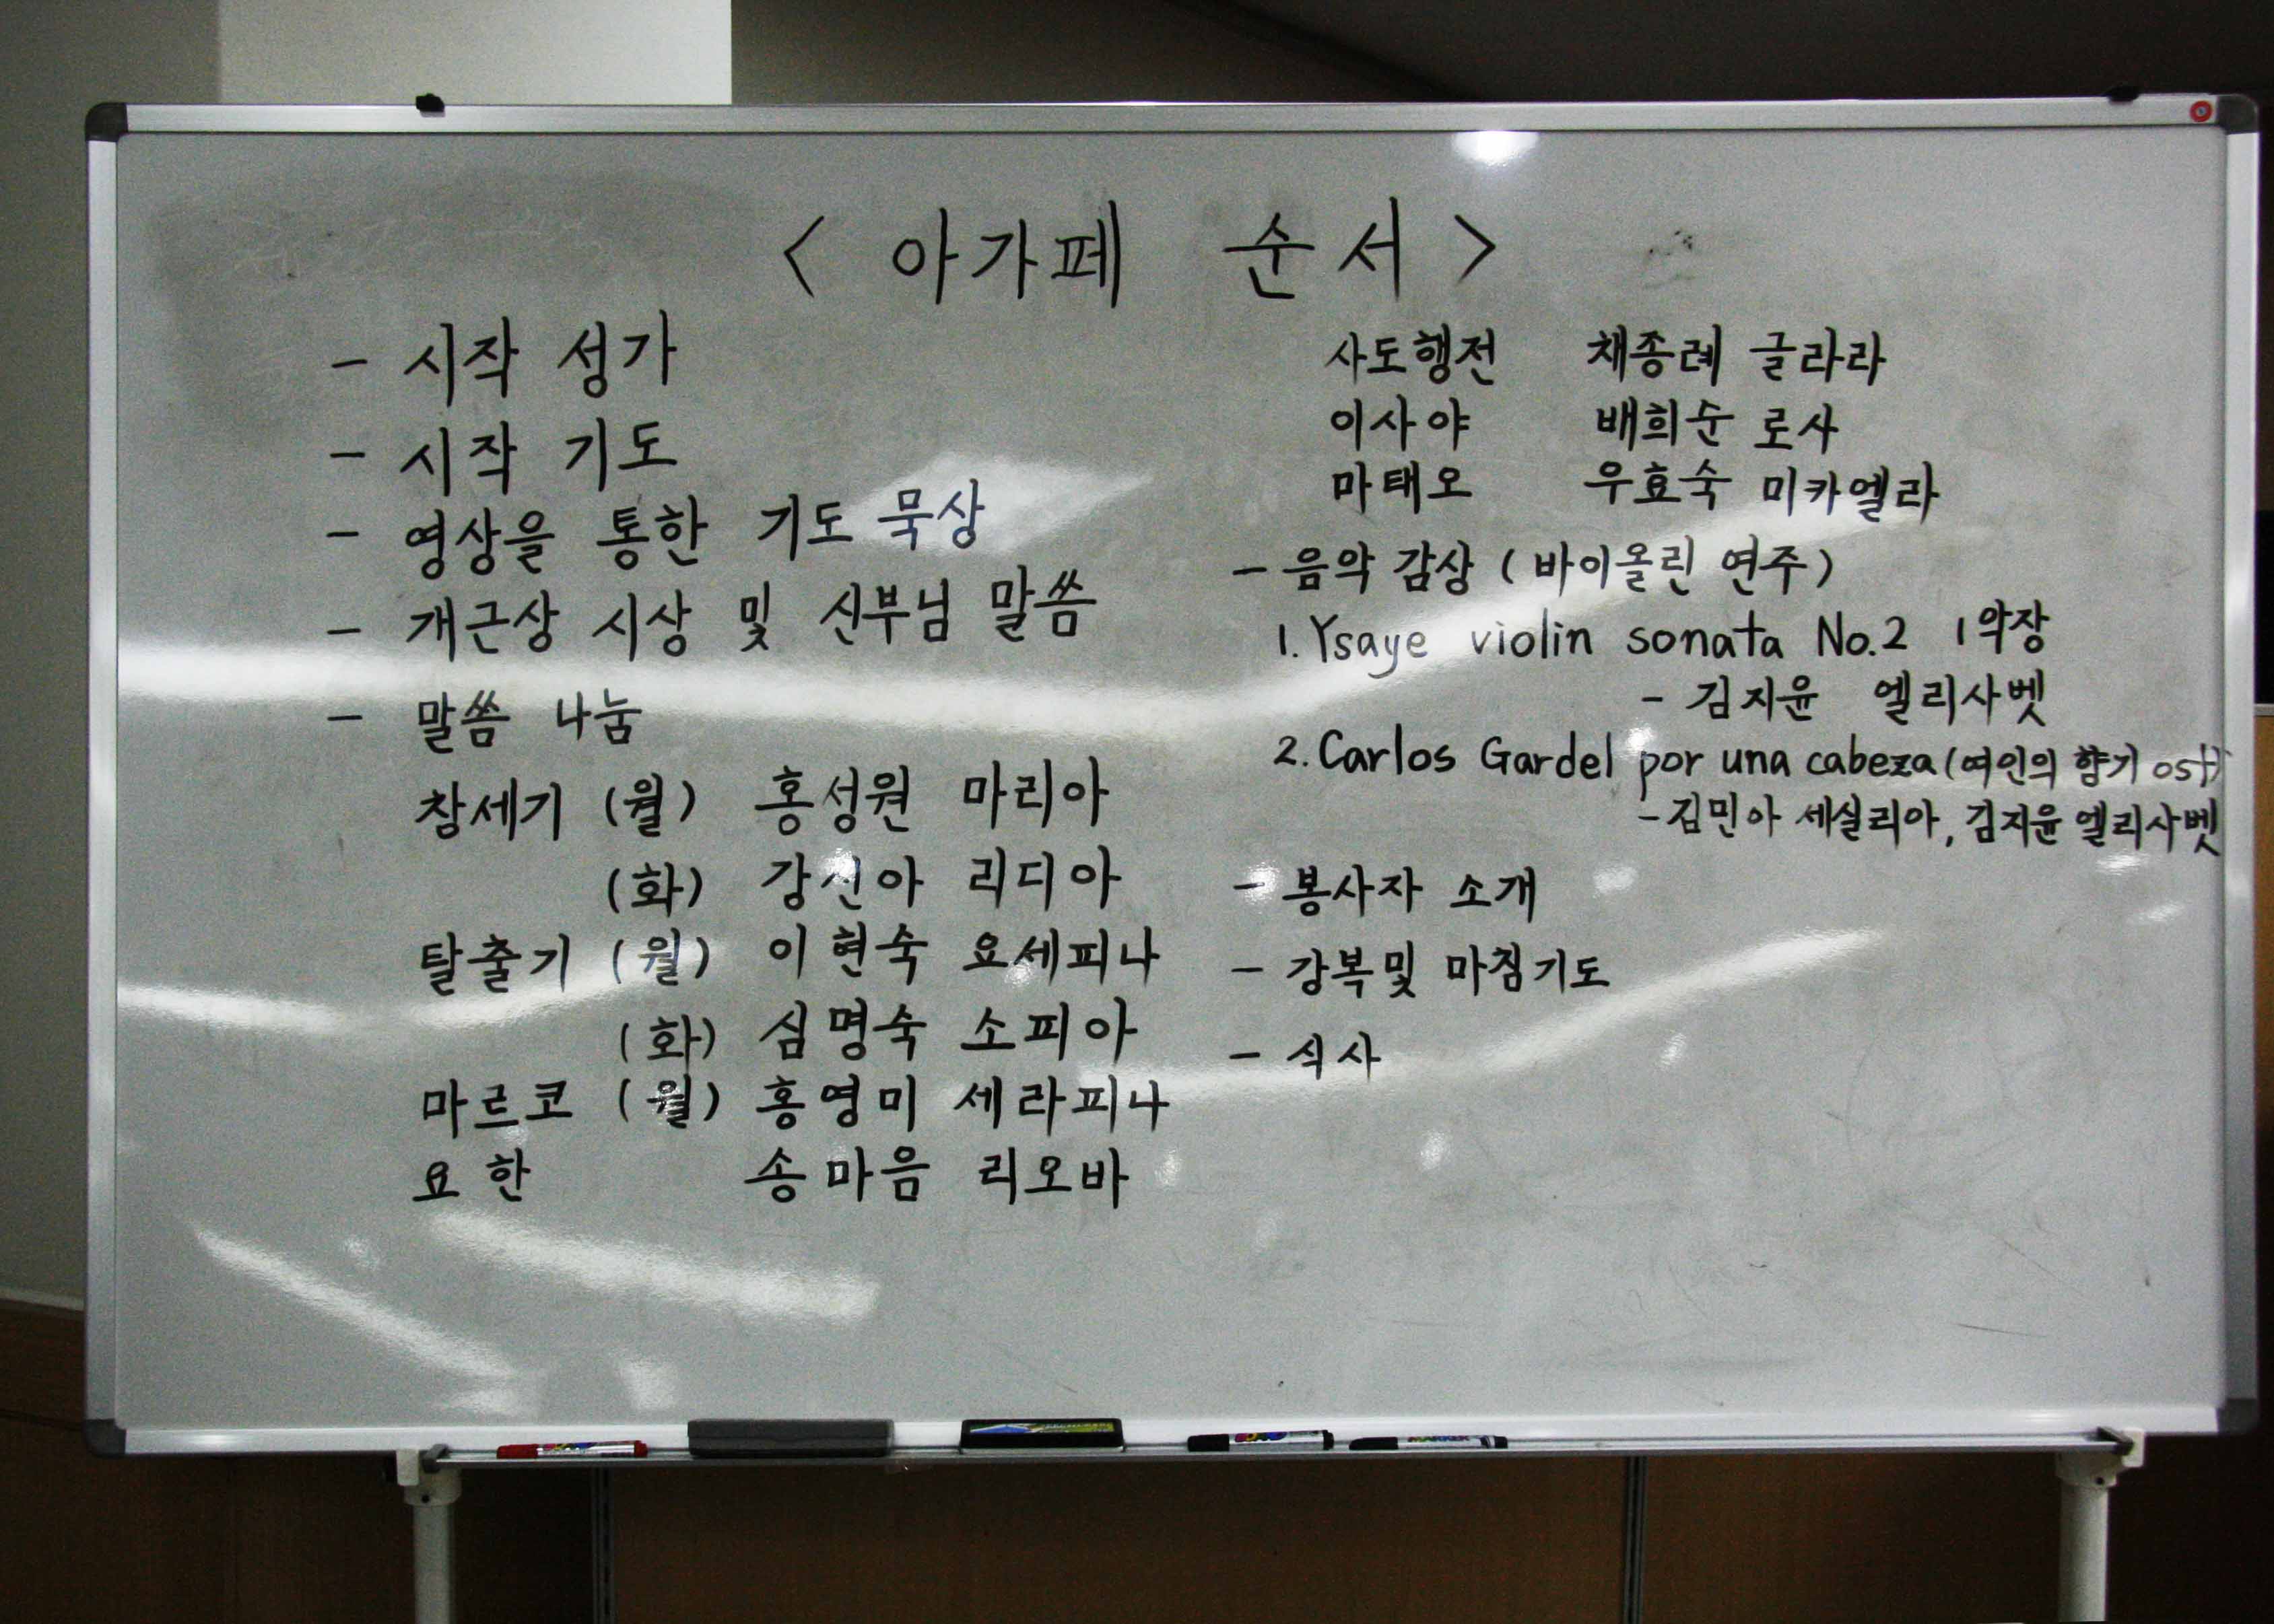 < 아가페 순서 >
- 시작 성가
- 시작 기도
- 영상을 통한 기도 묵상
- 개근상 시상 및 신부님 말씀
- 말씀 나눔
창세기 (월) 홍성원 마리아
(화) 강신아 리디아
탈출기 (월) 이현숙 요세피나
(화) 심명숙 소피아
마르코 (월) 홍영미 세라피나
요한 송마음 리오바
사도행전 채종례 글라라
이사야 배희순 로사
마태오 우효숙 미카엘라
- 음악 감상 (바이올린 연주)
1. Ysaye violin sonata No.2 1악장
- 김지윤 엘리사벳
2. Carlos Gardel por una cabeza (여인의 향기 ost)
- 김민아 세실리아, 김지윤 엘리사벳
- 봉사자 소개
- 강복및 마침기도
- 식사